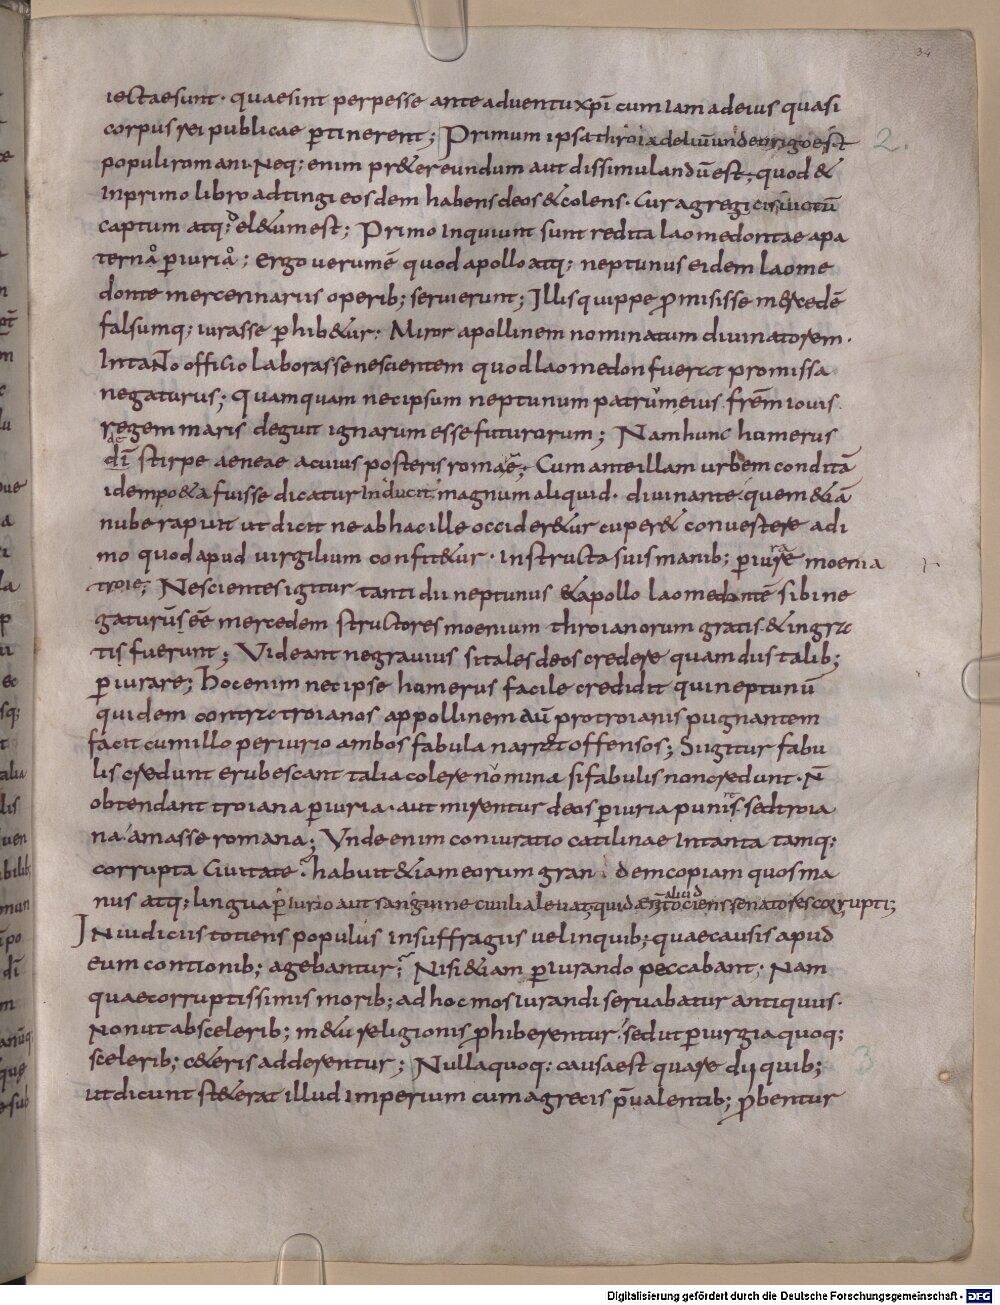 34
iectae sunt · quae sint perpesse ante adventu xpi cum iam ad eius quasi
corpus rei publicae ptinerent; Primum ipsa throia del ilium unde origo est
2.
populi romani · Neq; enim pr&ereundum aut dissimulandū est; quod &
In primo libro adtingi eosdem habens deos & colens · Cur a gregis uictū
captum atq; del&um est; Primo Inquiunt sunt redita laomedontae apa
terna piuria; ergo uerum ē quod apollo atq; neptunus eidem laome
donte mercennariis operib; seruierunt; Illis quippe pmisisse mercedē
falsumq; iurasse phib&ur · Miror apollinem nominatum diuinatorem ·
In tanto officio laborasse nescientem quod laomedon fuerat promissa
negaturus; quamquam nec ipsum neptunum patrūm eius frēm iouis
regem maris deguit ignarum esse futurorum; Nam hunc homerus
dī stirpe aeneae a cuius posteris romae · Cum ante illam urbem conditā
idem po&a fuisse dicatur Inducit magnum aliquid · diuinante quem &iā
nube rapuit ut dicit ne ab hac ille occider&ur cuper& conuestere ad i
mo quod apud uirgilium confit&ur · Instructa suis manib; piure moenia
ra
troie; Nescientes igitur tanti dii neptunus & apollo laomedontē sibi ne
gaturūs eē mercedem structores moenium throianorum gratis & ingra
tis fuerunt; Videant ne grauius si tales deos credere quam diis talib;
piurare; hoc enim nec ipse homerus facile credidit qui neptunū
quidem contra troianos appollinem aū pro troianis pugnantem
facit cum illo periurio ambos fabula narret offensos; Si igitur fabu
lis credunt erubescant talia colere nomina si fabulis non credunt · N̄
obtendant troiana piuria · aut mirentur deos piuria punis · sed troia
na amasse romana; Vnde enim coniuratio catilinae In tanta tamq;
corrupta Ciuitate habuit &iam eorum gran dem copiam quos ma
nus atq; lingua piurio aut sanguine ciuili alebat quid aliud totiens senatores corrupti;
In iudiciis totiens populus In suffragiis uel in quib; quae causis apud
eum contionib; agebantur; Nisi &iam piurando peccabant · Nam
quae corruptissimis morib; ad hoc mos Iurandi seruabatur antiquus ·
Non ut ab scelerib; m&u religionis phiberentur sed ut piurgia quoq;
scelerib; c&eris adderentur; Nulla quoq; causa est quare dii quib;
3
ut dicunt st&erat illud Imperium cum a grecis pualentib; pbentur
Digitalisierung gefördert durch die Deutsche Forschungsgemeinschaft - DFG